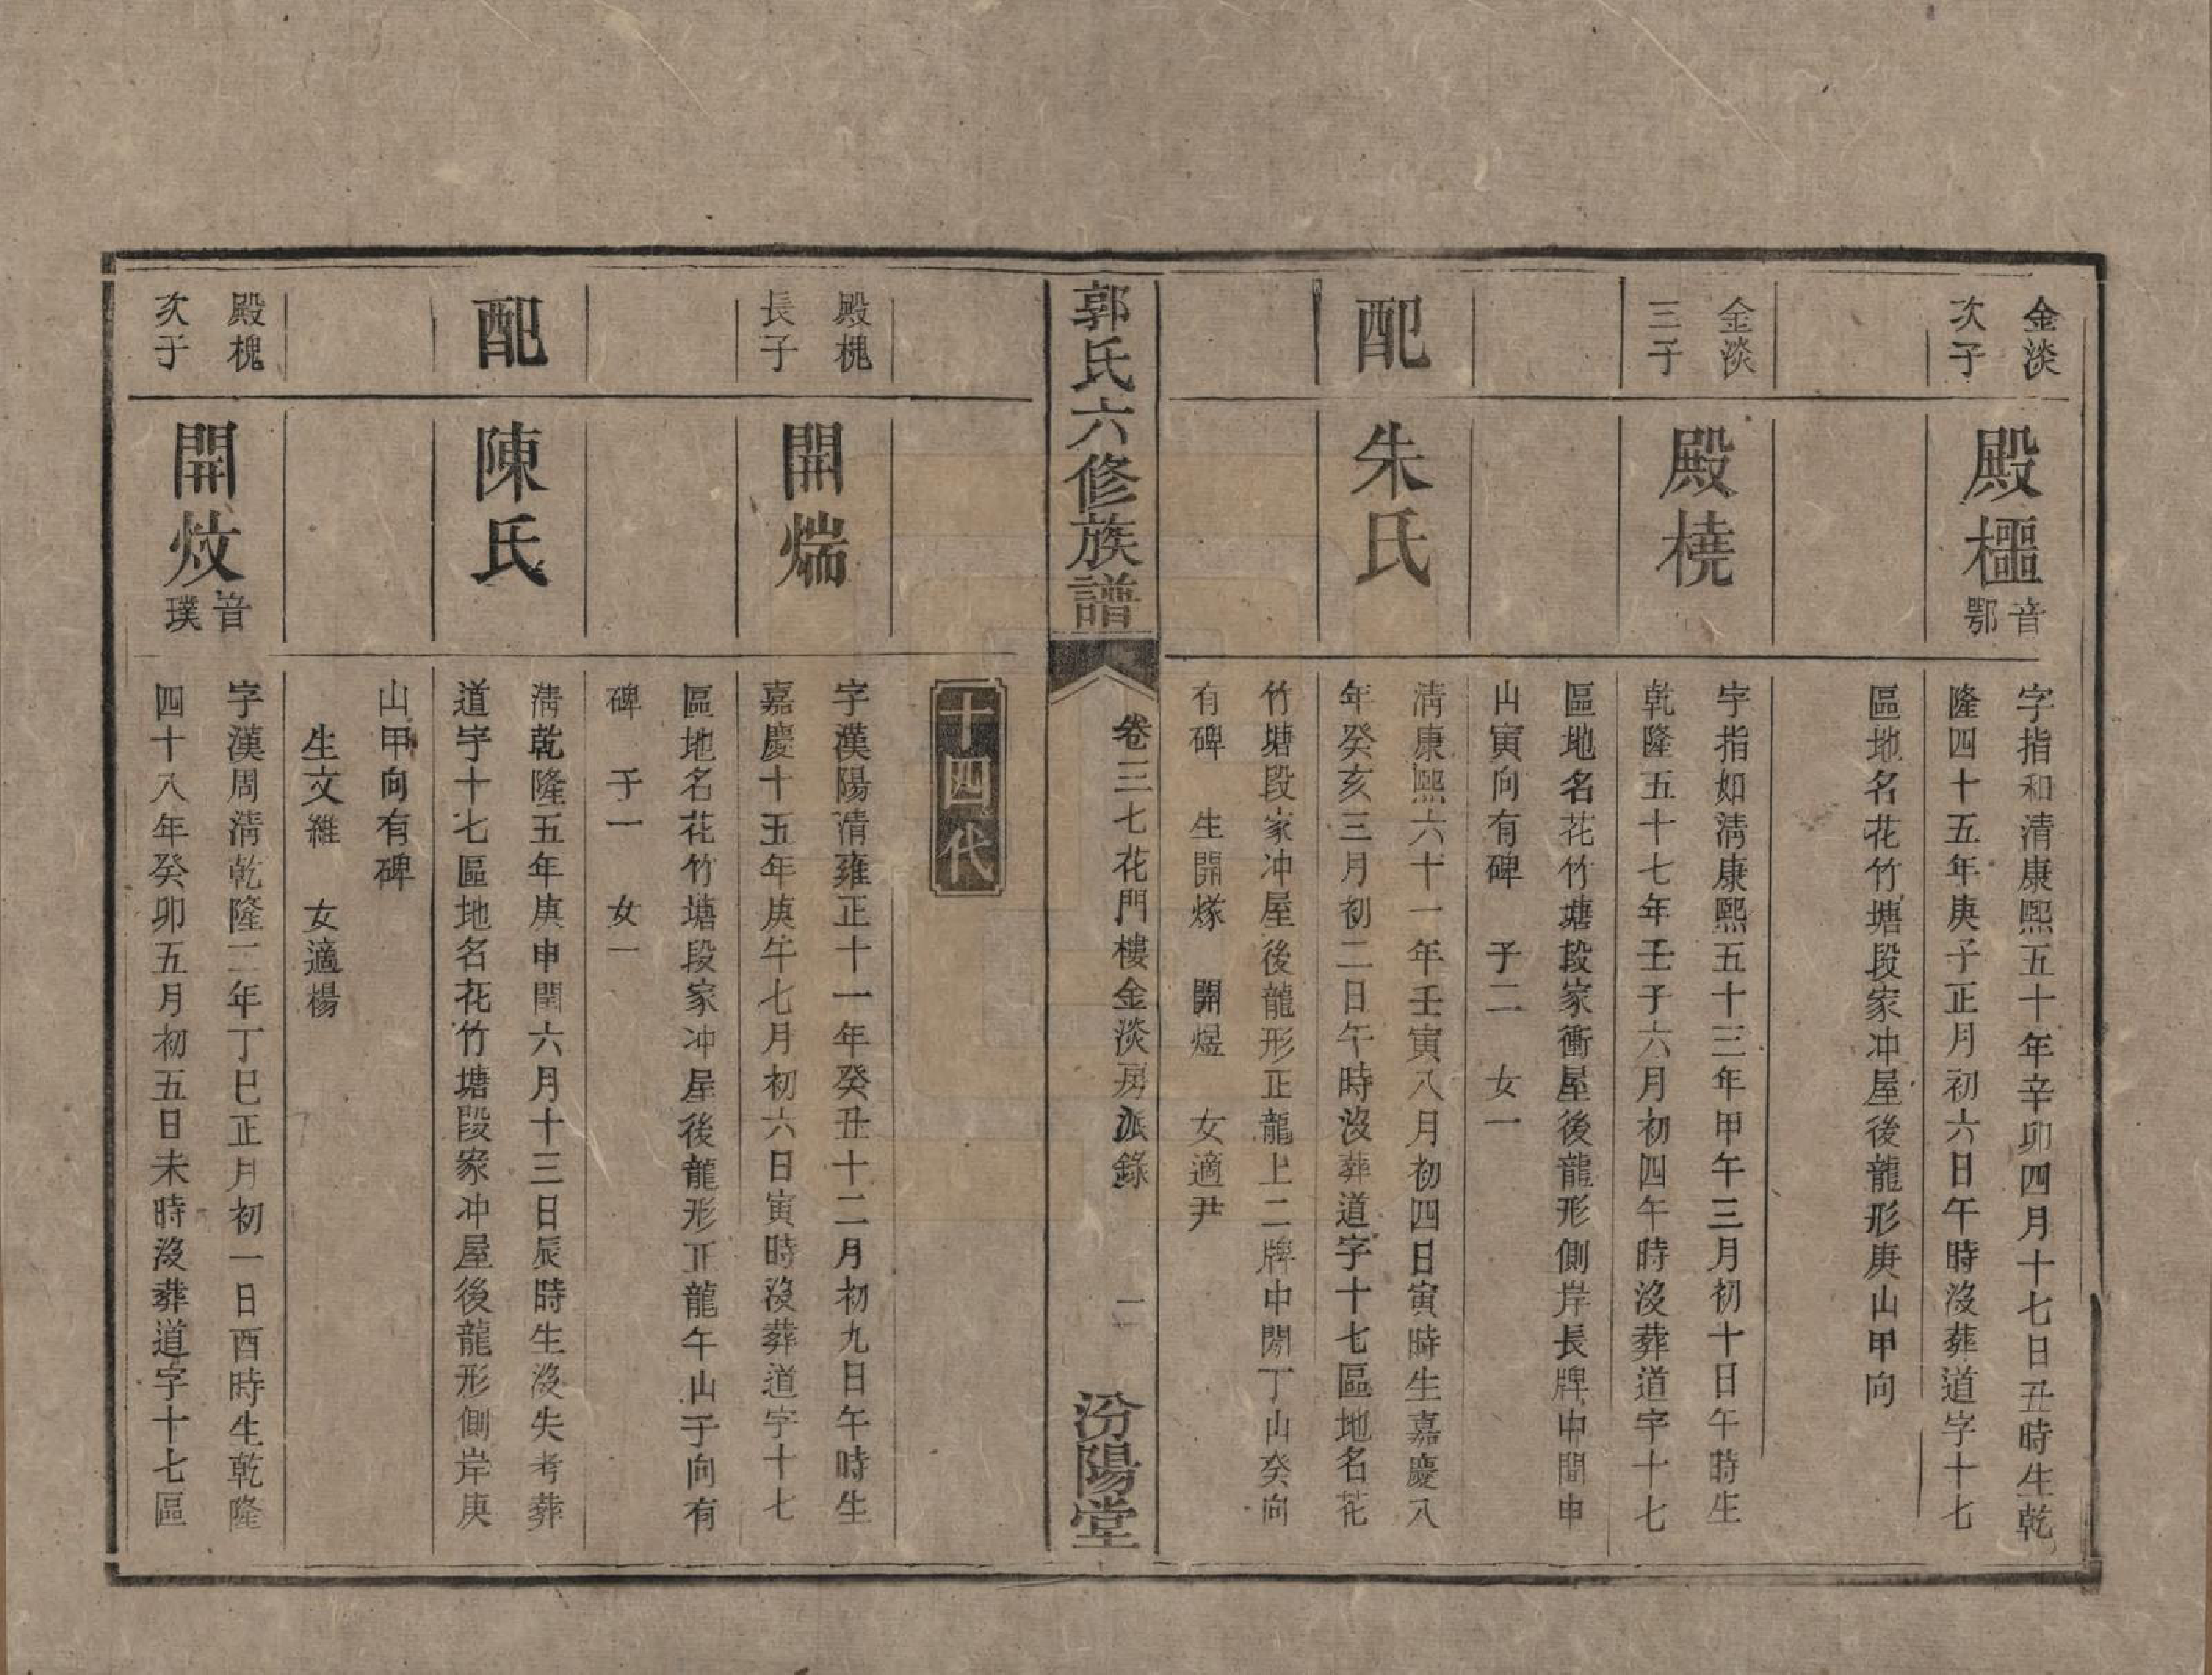 金淡
次子
殿櫮
音
鄂
字指和清康熙五十年辛卯四月十七日丑時生乾
隆四十五年庚子正月初六日午時沒葬道字十七
區地名花竹塘段家冲屋後龍形庚山甲向
金淡
三子
殿橈
字指如淸康熙五十三年甲午三月初十日午時生
乾隆五十七年壬子六月初四午時沒葬道字十七
區地名花竹塘段家衝屋後龍形側岸長牌中間申
山寅向有碑　子二　女一
配
朱氏
淸康熙六十一年壬寅八月初四日寅時生嘉慶八
年癸亥三月初二日午時沒葬道字十七區地名花
竹塘段家冲屋後龍形正龍上二牌中間丁山癸向
有碑　生開㸂　開煜　女適尹
郭氏六修族譜
卷三七花門樓金淡房派錄
二
汾陽堂
十四代
殿槐
長子
開煓
字漢陽清雍正十一年癸丑十二月初九日午時生
嘉慶十五年庚午七月初六日寅時沒葬道字十七
區地名花竹塘段家冲屋後龍形正龍午山子向有
碑　子一　女一
配
陳氏
淸乾隆五年庚申閏六月十三日辰時生沒失考葬
道字十七區地名花竹塘段家冲屋後龍形側岸庚
山甲向有碑
生文維　女適楊
殿槐
次子
開炇
音
璞
字漢周淸乾隆二年丁巳正月初一日酉時生乾隆
四十八年癸卯五月初五日未時沒葬道字十七區